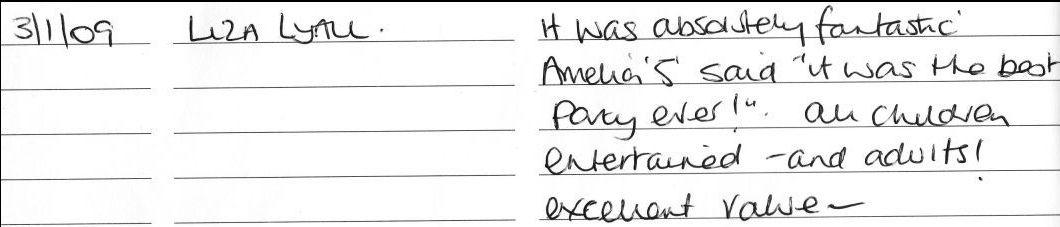 3/1/09 LIZA LYALL. It was absolutely fantastic
Amelia '5' said "it was the best
Party ever!". All children
entertained - and adults!
excellent value -